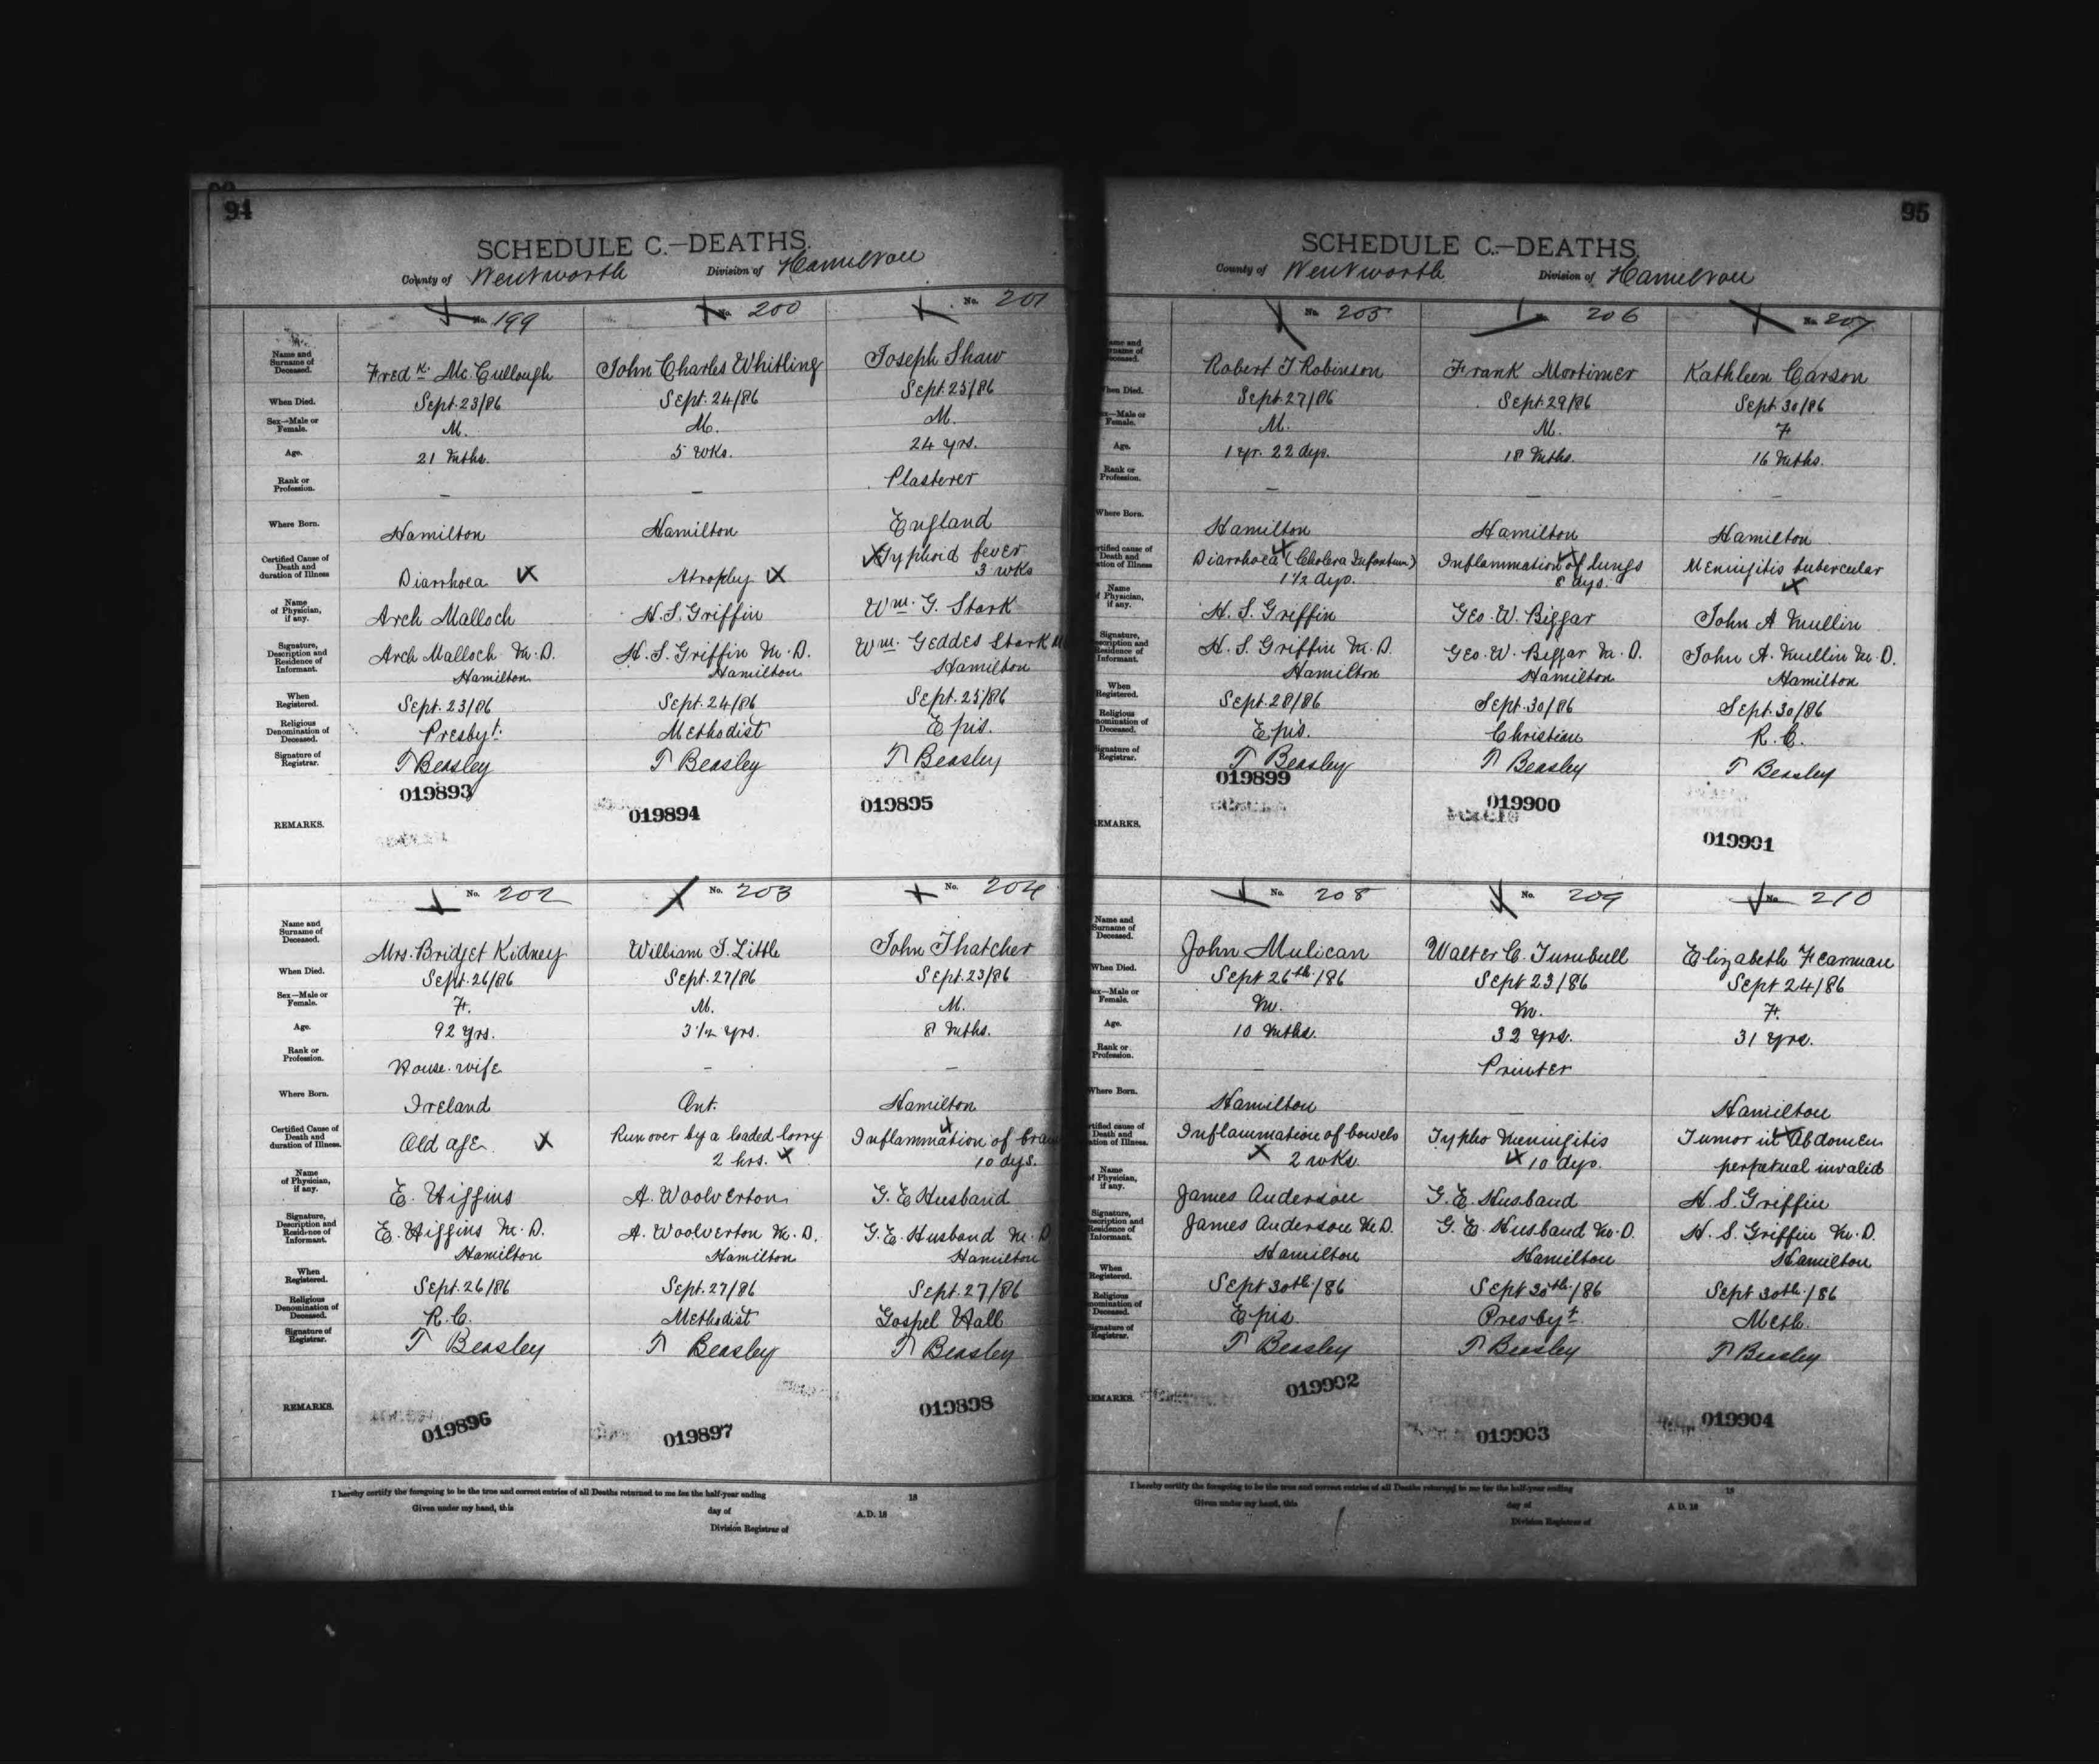 94
SCHEDULE C.—DEATHS.
County of Wentworth Division of Hamilton
No. 199 No. 200 No. 201
Name and Surname of Deceased. Fredk. Mc.Cullough John Charles Whitling Joseph Shaw
When Died. Sept. 23/86 Sept. 24/86 Sept. 25/86
Sex—Male or Female. M. M. M.
Age. 21 Mths. 5 wks. 24 yrs.
Rank or Profession. – – Plasterer
Where Born. Hamilton Hamilton England
Certified Cause of Death and duration of Illness Diarrhoea Atrophy Typhoid fever
3 wks
Name of Physician, if any. Arch Malloch H. S. Griffin Wm. G. Stark
Signature, Description and Residence of Informant. Arch Malloch M.D. H. S. Griffin M.D. Wm. Geddes Stark
Hamilton Hamilton Hamilton
When Registered. Sept. 23/86 Sept. 24/86 Sept. 25/86
Religious Denomination of Deceased. Presbyt. Methodist Epis.
Signature of Registrar. T Beasley T Beasley T Beasley
REMARKS. 019893 019894 019895
No. 202 No. 203 No. 204
Name and Surname of Deceased. Mrs. Bridget Kidney William J. Little John Thatcher
When Died. Sept. 26/86 Sept. 27/86 Sept. 23/86
Sex—Male or Female. F. M. M.
Age. 92 yrs. 3 1/2 yrs. 8 Mths.
Rank or Profession. House-wife – –
Where Born. Ireland Ont. Hamilton
Certified Cause of Death and duration of Illness. Old age Run over by a loaded lorry Inflammation of brain
2 hrs. 10 dys.
Name of Physician, if any. E. Higgins A. Woolverton G. E. Husband
Signature, Description and Residence of Informant. E. Higgins M.D. A. Woolverton M.D. G. E. Husband M.D
Hamilton Hamilton Hamilton
When Registered. Sept. 26/86 Sept. 27/86 Sept. 27/86
Religious Denomination of Deceased. R.C. Methodist Gospel Hall
Signature of Registrar. T Beasley T Beasley T Beasley
REMARKS. 019896 019897 019898
I hereby certify the foregoing to be the true and correct entries of all Deaths returned to me for the half-year ending 18
Given under my hand, this day of A.D. 18
Division Registrar of
95
SCHEDULE C.—DEATHS.
County of Wentworth Division of Hamilton
No. 205 No. 206 No. 207
Robert J Robinson Frank Mortimer Kathleen Carson
Sept. 27/86 Sept. 29/86 Sept. 30/86
M. M. F
Age. 1 yr. 22 dys. 18 Mths. 16 Mths.
Rank or Profession. – – –
Where Born. Hamilton Hamilton Hamilton
Diarrhoea (Cholera Infantum) Inflammation of lungs Meningitis tubercular
1 1/2 dys. 8 dys.
Name of Physician, if any. H. S. Griffin Geo. W. Biggar John A Mullin
H. S. Griffin M.D. Geo. W. Biggar M.D. John A. Mullin M.D.
Hamilton Hamilton Hamilton
When Registered. Sept. 28/86 Sept. 30/86 Sept. 30/86
Epis. Christian R.C.
T Beasley T Beasley T Beasley
019899 019900 019901
No. 208 No. 209 No. 210
Name and Surname of Deceased. John Mulican Walter C. Turnbull Elizabeth Fearman
When Died. Sept 26th/86 Sept 23/86 Sept 24/86
M. M. F.
Age. 10 Mths. 32 yrs. 31 yrs.
Rank or Profession. – Printer –
Where Born. Hamilton – Hamilton
Inflammation of bowels Typho Meningitis Tumor in Abdomen
2 wks. 10 dys. perpetual invalid
Name of Physician, if any. James Anderson G. E. Husband H. S. Griffin
James Anderson M.D. G. E. Husband M.D. H. S. Griffin M.D.
Hamilton Hamilton Hamilton
When Registered. Sept 30th/86 Sept 30th/86 Sept 30th/86
Epis Presbyt. Meth.
T Beasley T Beasley T Beasley
019902 019903 019904
I hereby certify the foregoing to be the true and correct entries of all Deaths returned to me for the half-year ending 18
Given under my hand, this day of A D. 18
Division Registrar of